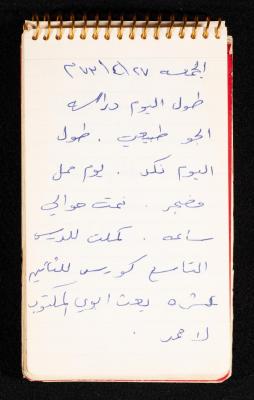 الجمعه ٢٧/٤/٧٣ م
طول اليوم دراسه
الجو طبيعي . طول
اليوم نكد . يوم ممل
ومضجر . نمت حوالي
ساعه . كملت للدرس
التاسع كورس للثاني
عشره بعت ابوي المكتوب
لاحمد .